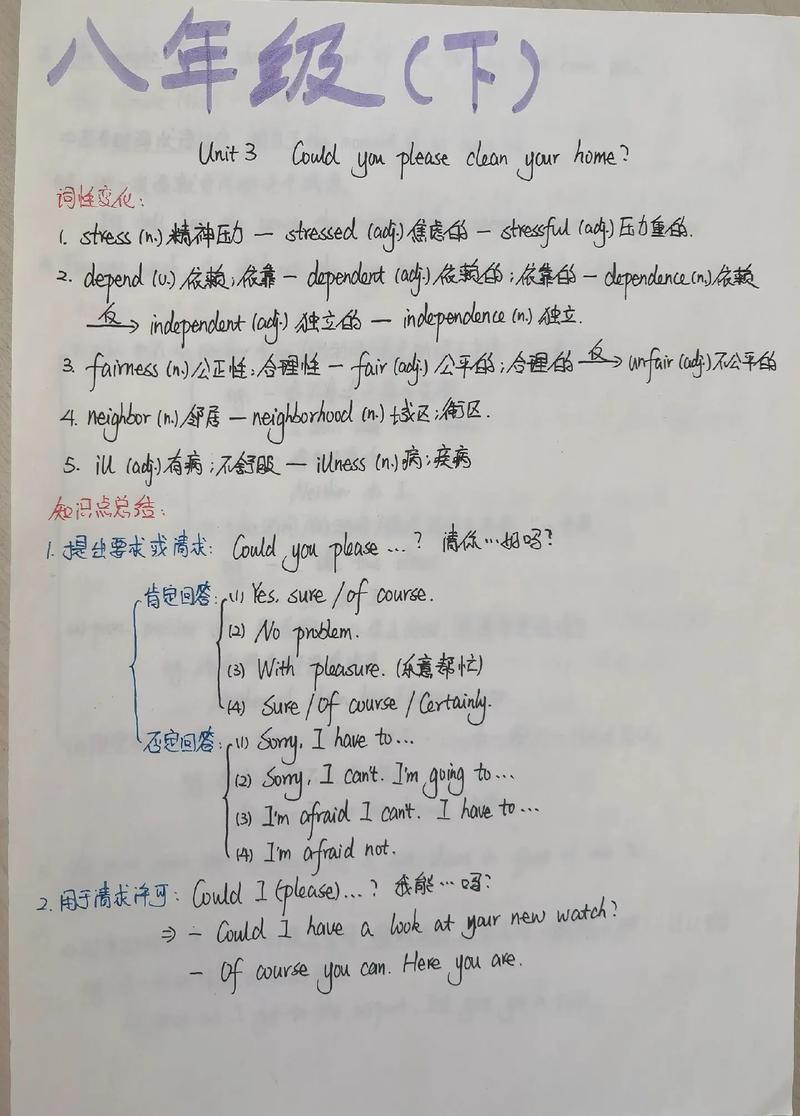 八年级(下)
Unit 3 Could you please clean your home?
词性变化:
1. stress (n.) 精神压力 — stressed (adj.) 焦虑的 — stressful (adj.) 压力重的.
2. depend (v.) 依赖;依靠 — dependent (adj.) 依赖的;依靠的 — dependence (n.) 依赖
反→ independent (adj.) 独立的 — independence (n.) 独立.
3. fairness (n.) 公正性;合理性 — fair (adj.) 公平的;合理的 反→ unfair (adj.) 不公平的
4. neighbor (n.) 邻居 — neighborhood (n.) 地区;街区.
5. ill (adj.) 有病;不舒服 — illness (n.) 病;疾病
知识点总结:
1. 提出要求或请求: Could you please ...? 请你…好吗?
肯定回答: (1) Yes, sure / of course.
(2) No problem.
(3) With pleasure. (乐意帮忙)
(4) Sure / Of course / Certainly.
否定回答: (1) Sorry, I have to...
(2) Sorry, I can't. I'm going to...
(3) I'm afraid I can't. I have to...
(4) I'm afraid not.
2. 用于请求许可: Could I (please) ...? 我能…吗?
⇒ – Could I have a look at your new watch?
– Of course you can. Here you are.